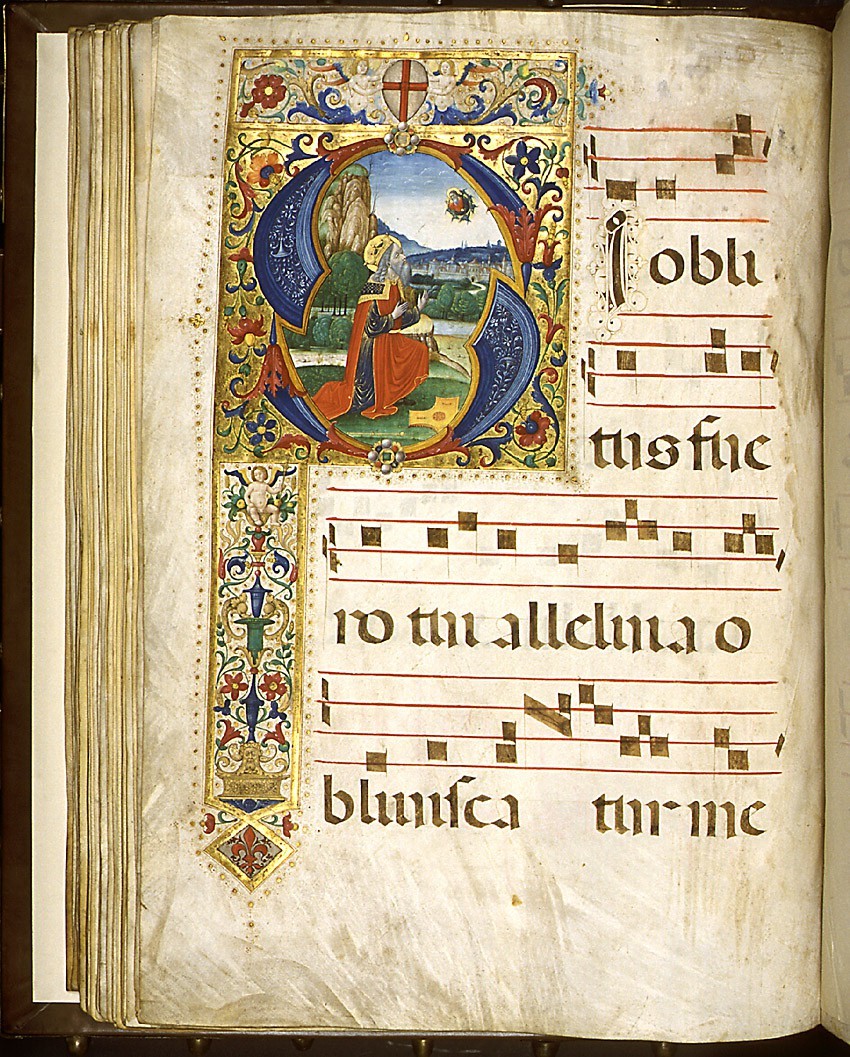 SI obli
tus fue
ro tui alleluia o
bliuisca tur me